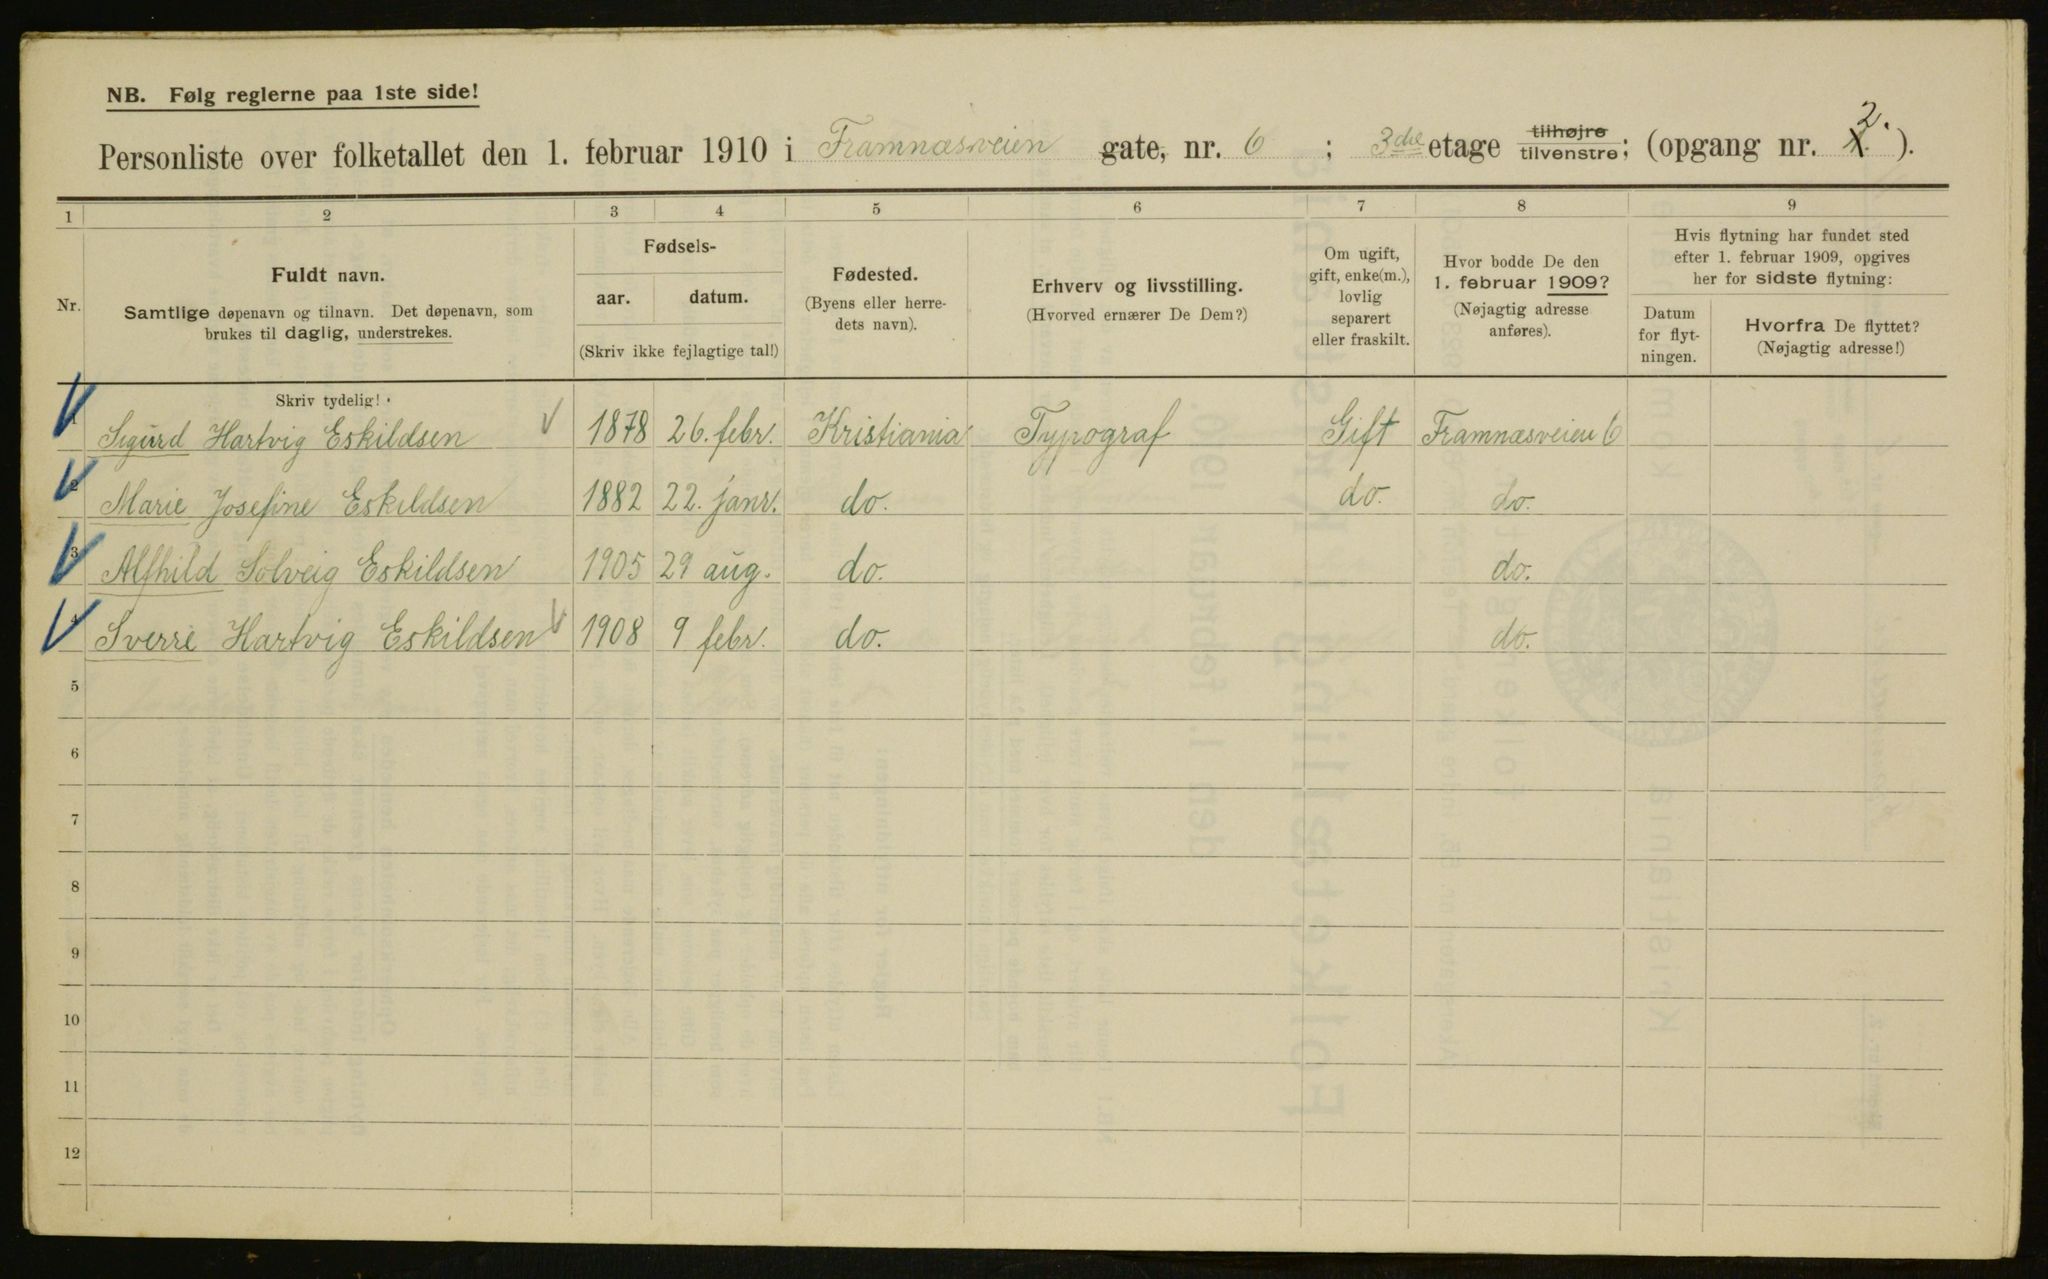 NB. Følg reglerne paa 1ste side!
Personliste over folketallet den 1. februar 1910 i Framnæsveien gate, nr. 6 ; 3die etage tilhøjre tilvenstre; (opgang nr. 2. ).
1 2 3 4 5 6 7 8 9
Nr.
Fuldt navn.
Samtlige døpenavn og tilnavn. Det døpenavn, som
brukes til daglig, understrekes.
Fødsels-
aar. datum.
(Skriv ikke fejlagtige tal!)
Fødested.
(Byens eller herre-
dets navn).
Erhverv og livsstilling.
(Hvorved ernærer De Dem?)
Om ugift,
gift, enke(m.),
lovlig
separert
eller fraskilt.
Hvor bodde De den
1. februar 1909?
(Nøjagtig adresse
anføres).
Hvis flytning har fundet sted
efter 1. februar 1909, opgives
her for sidste flytning:
Datum
for flyt-
ningen.
Hvorfra De flyttet?
(Nøjagtig adresse!)
Skriv tydelig!
1 Sigurd Hartvig Eskildsen 1878 26. febr. Kristiania Typograf Gift Framnæsveien 6
2 Marie Josefine Eskildsen 1882 22. janr. do. do. do.
3 Alfhild Solveig Eskildsen 1905 29 aug. do. do.
4 Sverre Hartvig Eskildsen 1908 9 febr. do. do.
5
6
7
8
9
10
11
12